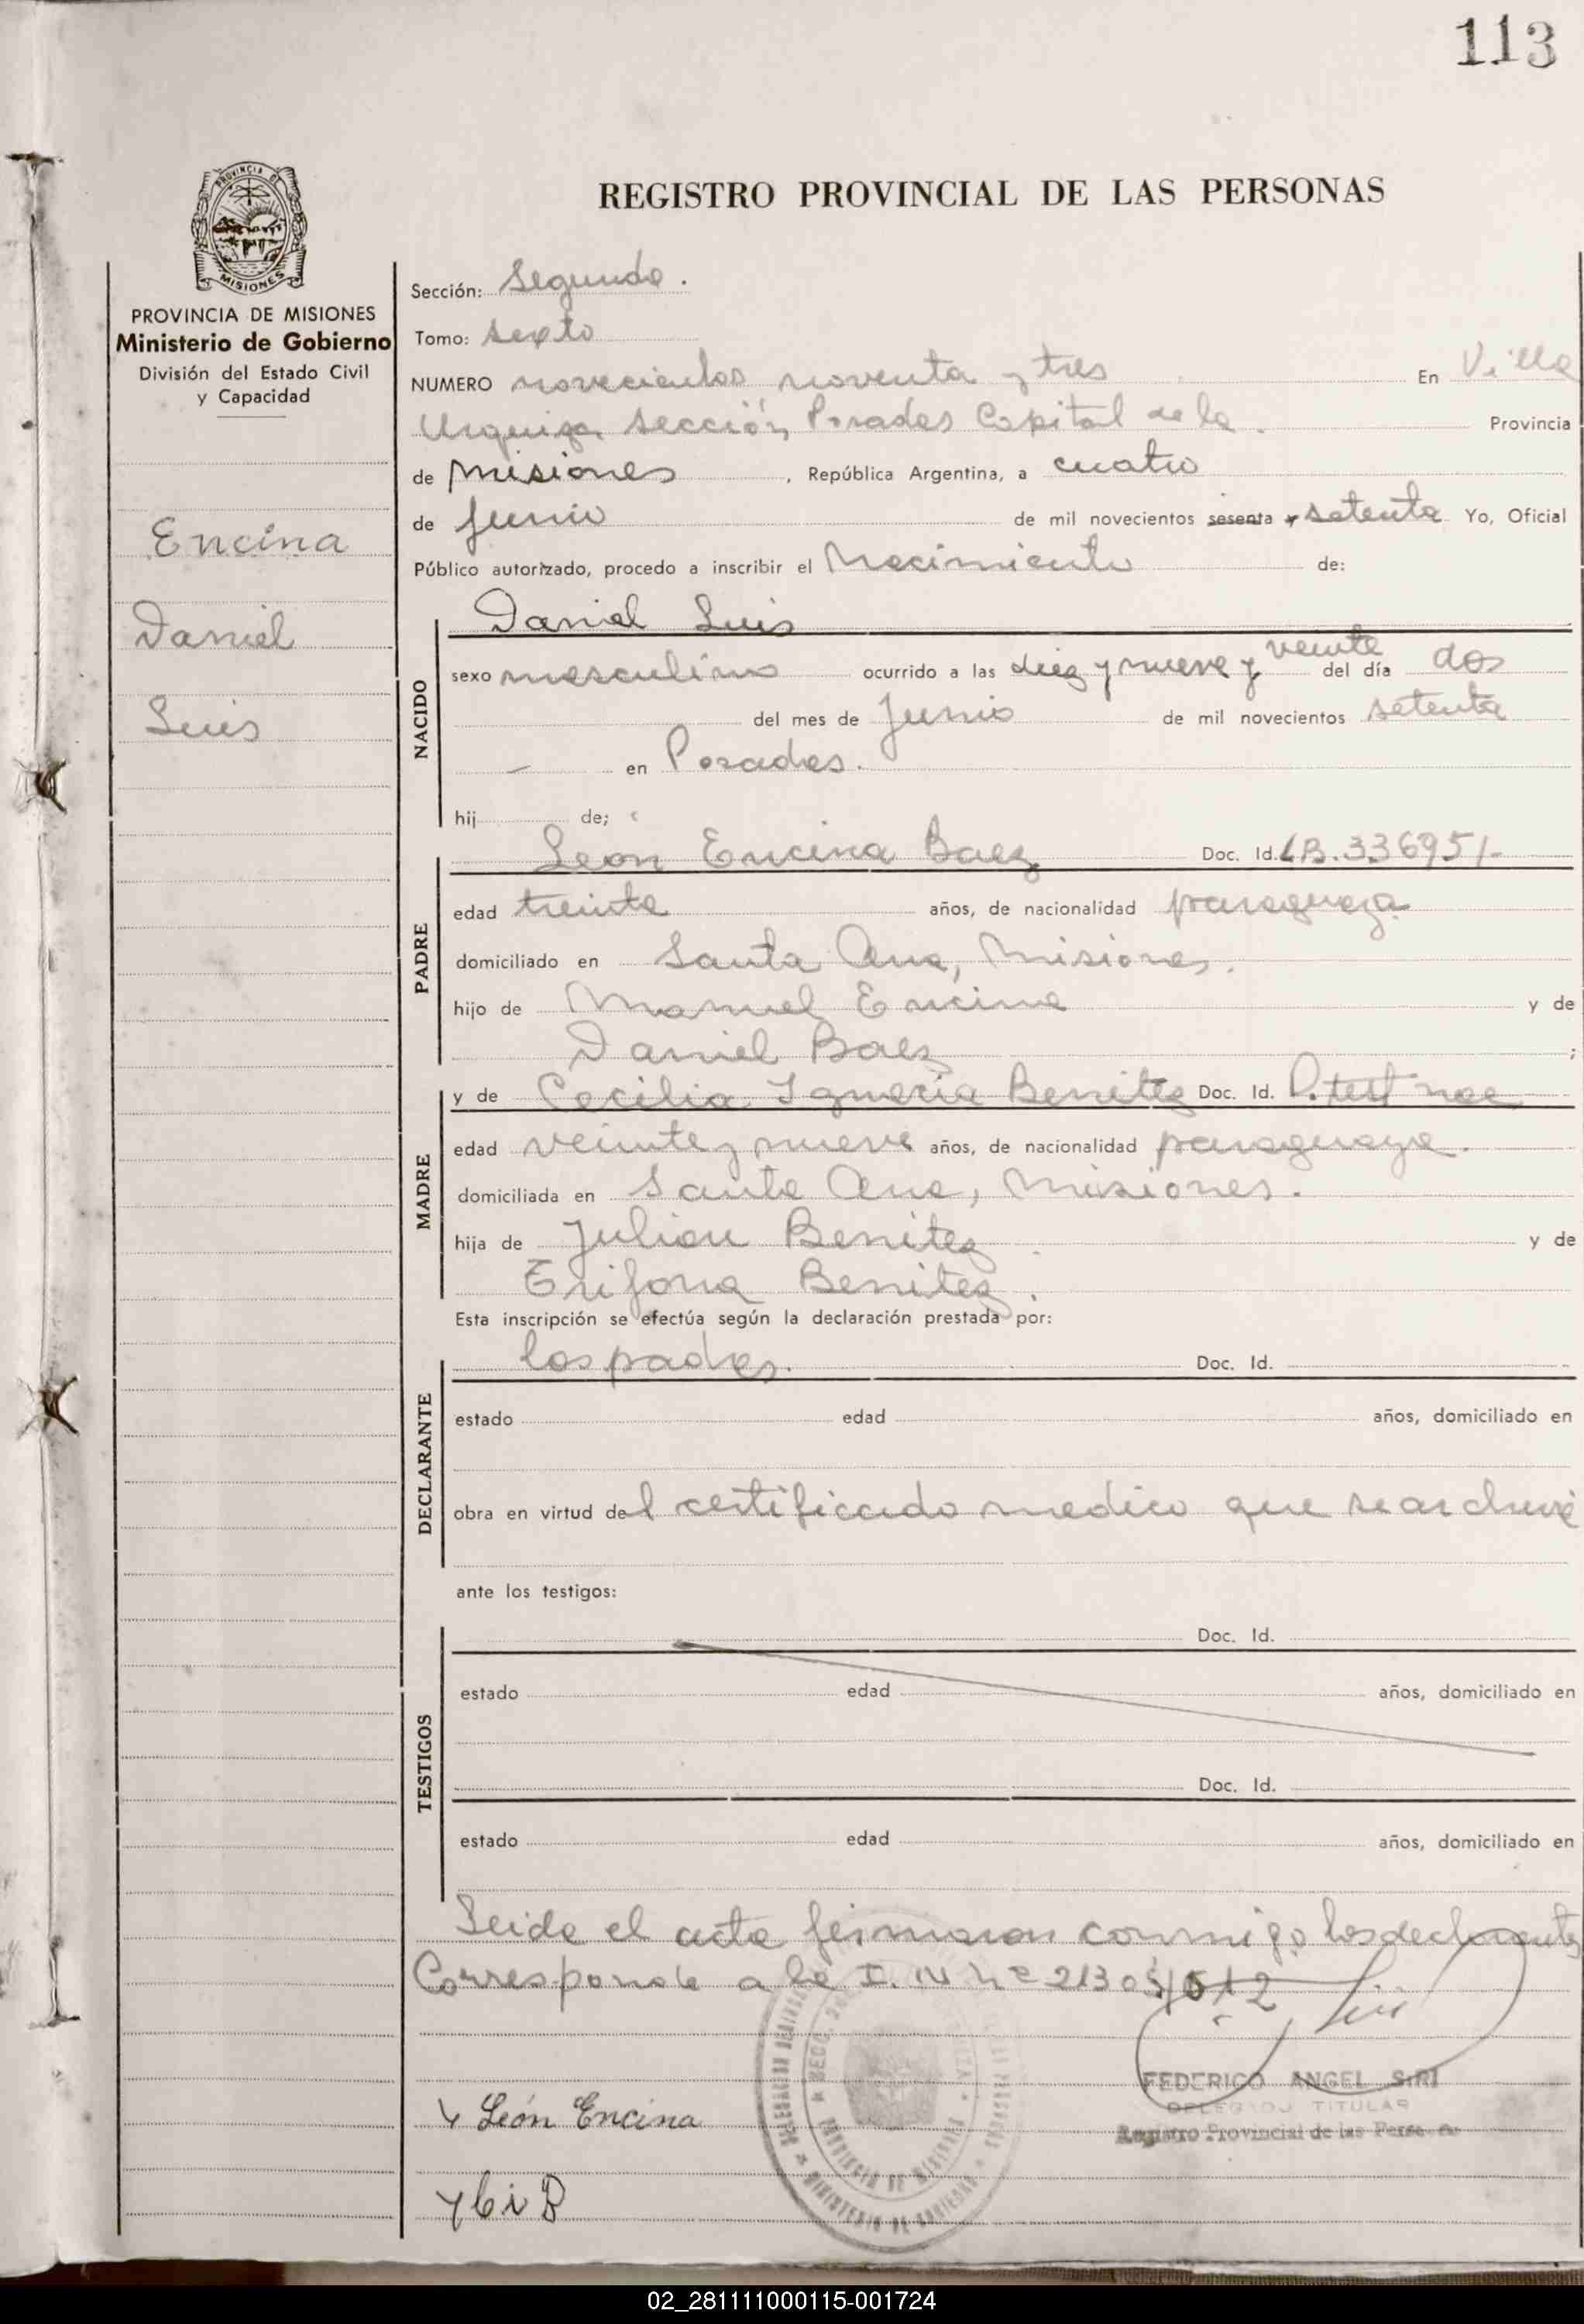 113
REGISTRO PROVINCIAL DE LAS PERSONAS
PROVINCIA DE MISIONES
MISIONES
PROVINCIA DE MISIONES
Ministerio de Gobierno
División del Estado Civil
y Capacidad
Encina
Daniel
Luis
Sección: Segunda.
Tomo: sexto
NUMERO novecientos noventa y tres En Villa
Urquiza sección Posadas Capital de la. Provincia
de Misiones, República Argentina, a cuatro
de Junio de mil novecientos sesenta y setenta Yo, Oficial
Público autorizado, procedo a inscribir el Nacimiento de:
NACIDO
Daniel Luis
sexo masculino ocurrido a las diez y nueve y veinte del día dos
del mes de Junio de mil novecientos setenta
en Posadas.
hij de;
PADRE
León Encina Baez Doc. Id. LB.336951-
edad treinta años, de nacionalidad paraguaya
domiciliado en Santa Ana, Misiones.
hijo de Manuel Encina y de
Daniel Baez ;
MADRE
y de Cecilia Ignacia Benitez Doc. Id. P. test nac
edad veinte y nueve años, de nacionalidad paraguaya.
domiciliada en Santa Ana, Misiones.
hija de Julian Benitez y de
Benitez.
Esta inscripción se efectúa según la declaración prestada por:
DECLARANTE
los padres. Doc. Id.
estado edad años, domiciliado en
obra en virtud del certificado medico que se archiva
ante los testigos:
TESTIGOS
Doc. Id.
estado edad años, domiciliado en
Doc. Id.
estado edad años, domiciliado en
Leida el acta firmaron conmigo los declarantes
Corresponde a la I. N nº 21305/512
FEDERICO ANGEL SIRI
DELEGADO TITULAR
Registro Provincial de las Personas
León Encina
MINISTERIO DE GOBIERNO
PROVINCIA DE MISIONES
02_281111000115-001724